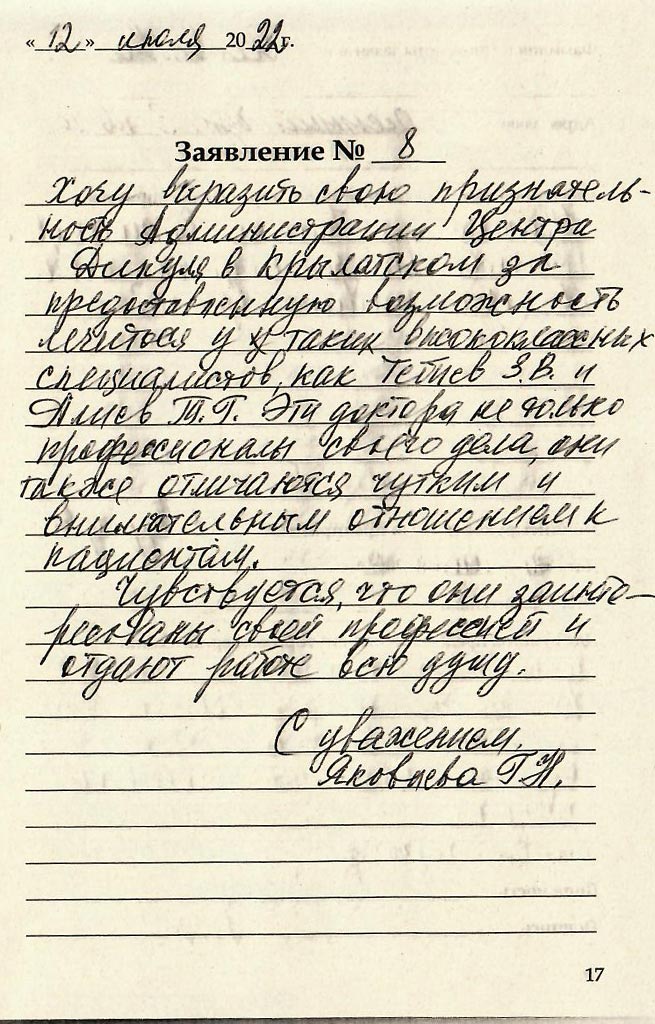 « 12 » июля 2022 г.
Заявление № 8
Хочу выразить свою признатель-
ность Администрации Центра
Дикуля в Крылатском за
предоставленную возможность
лечиться у таких высококлассных
специалистов, как Тетиев З.В. и
Алиев Т.Г. Эти доктора не только
профессионалы своего дела, они
также отличаются чутким и
внимательным отношением к
пациентам.
Чувствуется, что они заинте-
ресованы своей профессией и
отдают работе всю душу.
С уважением,
Яковлева Г.Н.
17